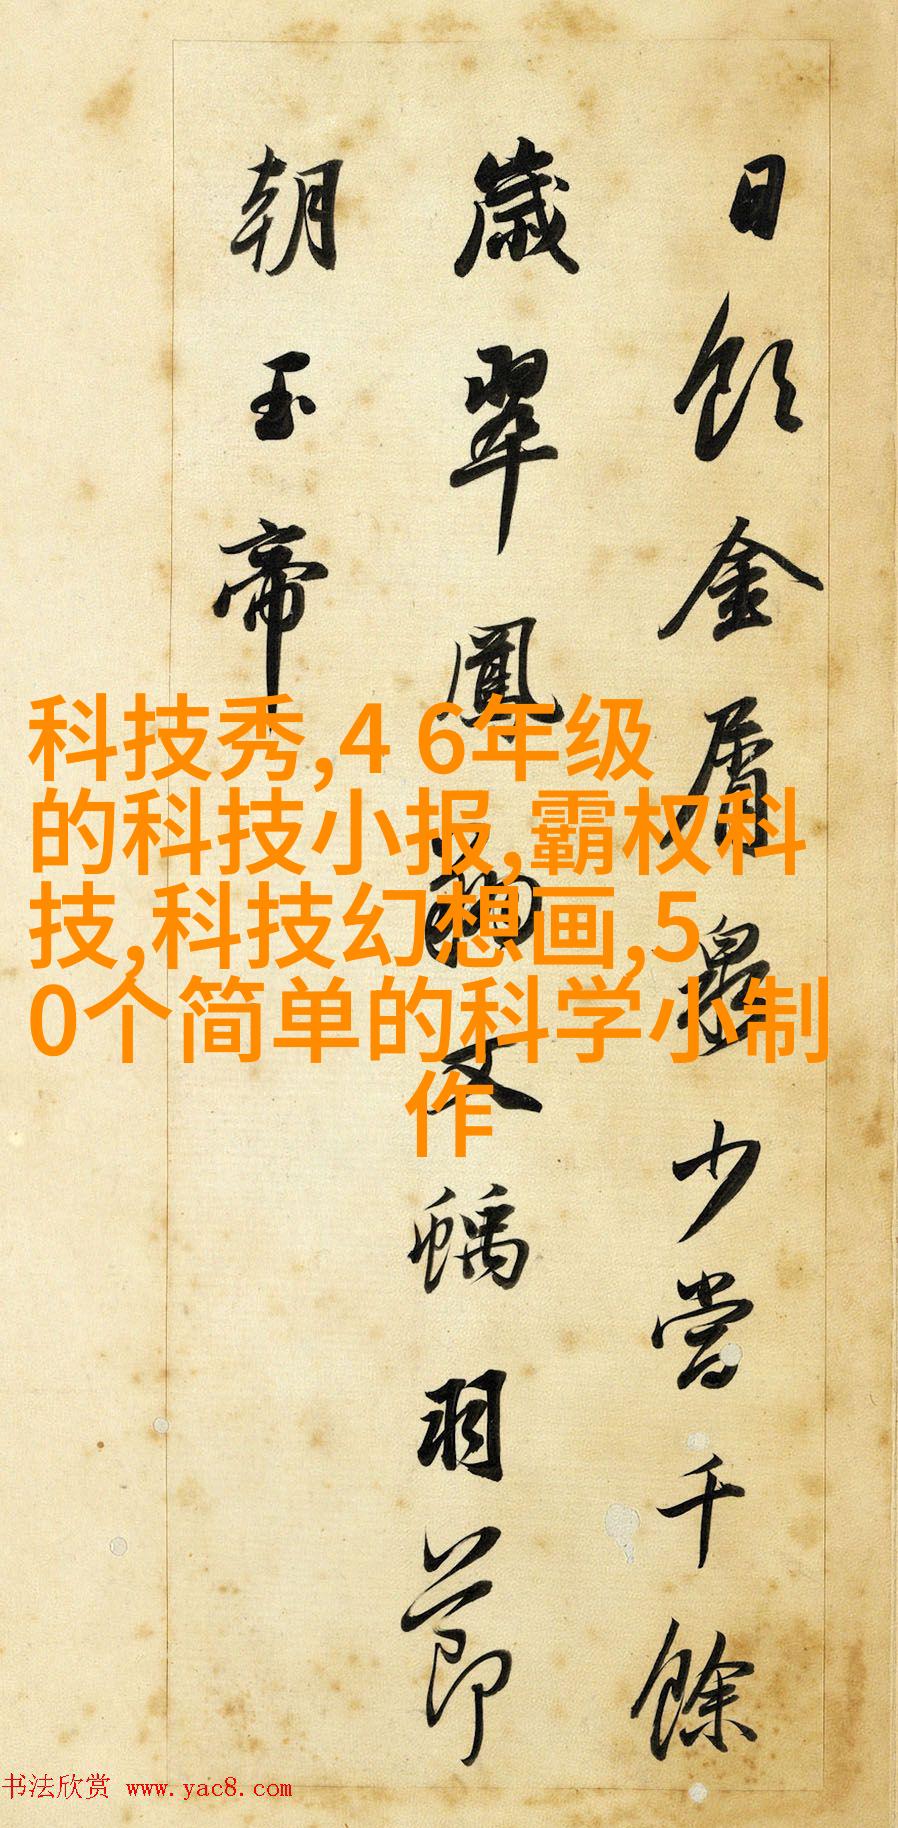 日飲金屑泉少當千餘
歲翠鳳文螭羽節
朝玉帝
科技秀,4 6年级
的科技小报,霸权科
技,科技幻想画,5
0个简单的科学小制
作
书法欣赏 www.yac8.com